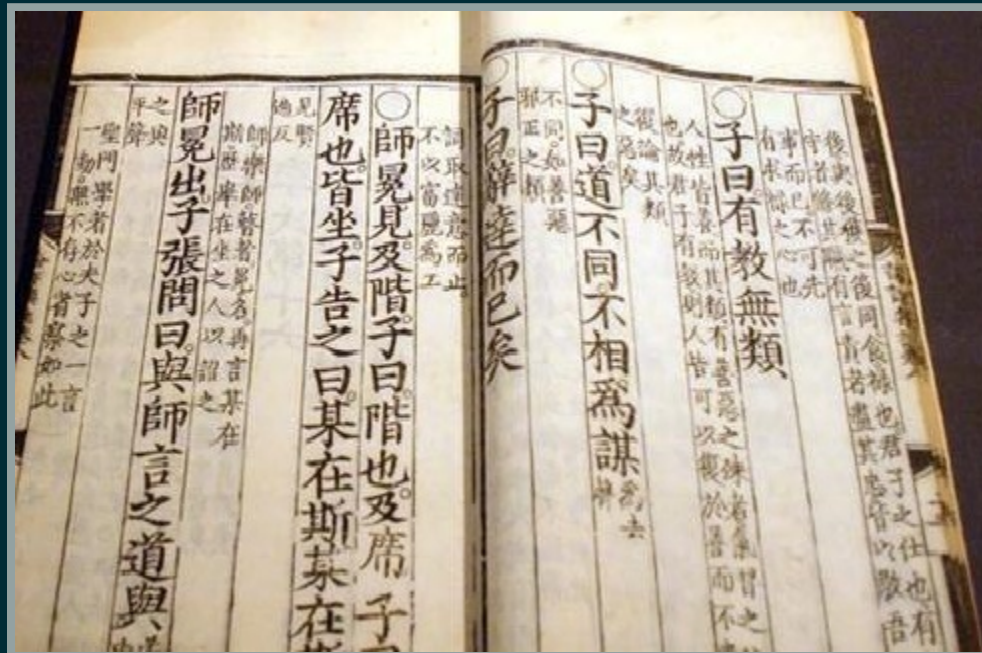 後與後獲之後同食祿也君子之仕也有
守者脩其職有言責者盡其忠皆以敬吾
事而已不可先
有求祿之心也
○子曰。有教無類、
人性皆善而其類有善惡之殊者氣習之
也故君子有教則人皆可以復於善而不
復論其類
之惡矣
○子曰。道不同。不相爲謀 爲去
不同。如善惡
邪正之類
○子曰。辭達而已矣
詞取達意而止。
不以富麗爲工
○師冕見。及階。子曰。階也。及席子
席也。皆坐。子告之曰。某在斯某在
見賢
遍反
師樂師瞽者。冕名。再言某在
斯。歷舉在坐之人以詔之
師冕出。子張問曰。與師言之道與、
之與
平聲
聖門學者於夫子之一言
一動。無不存心省察如此